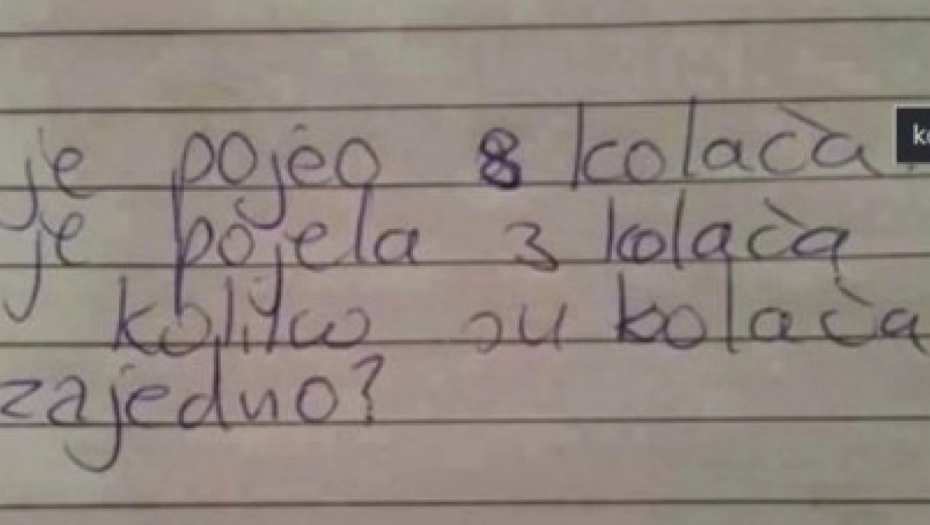 je pojeo 8 kolača.
je pojela 3 kolača
koliko su kolača
zajedno?